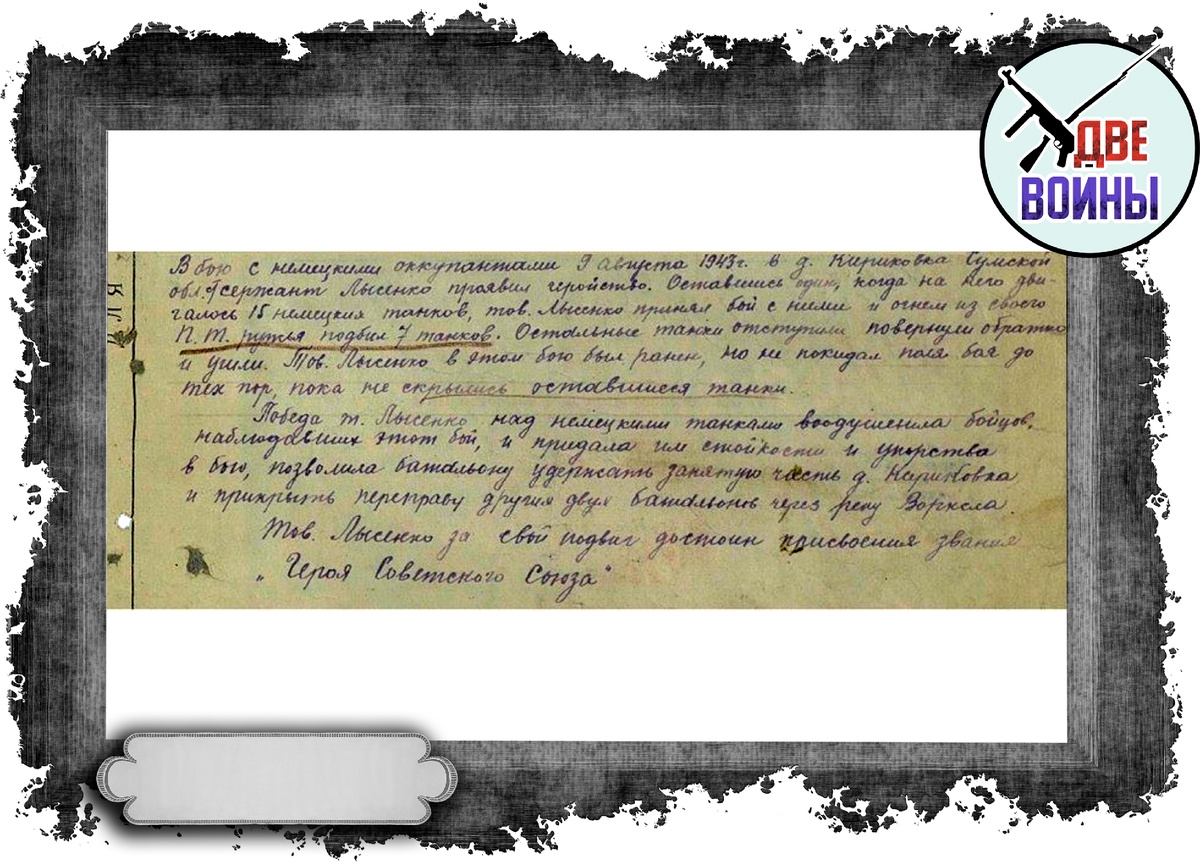 ДВЕ
ВОЙНЫ
В бою с немецкими оккупантами 9 августа 1943г. в д. Кириковка Сумской
обл. Гсержант Лысенко проявил геройство. Оставшись один, когда на него дви-
галось 15 немецких танков, тов. Лысенко принял бой с ними и огнем из своего
П.Т. ружья подбил 7 танков. Остальные танки отступили повернули обратно
и ушли. Тов. Лысенко в этом бою был ранен, но не покидал поля боя до
тех пор, пока не скрылись оставшиеся танки.
Победа т. Лысенко над немецкими танками воодушевила бойцов,
наблюдавших этот бой, и придала им стойкости и упорства
в бою, позволила батальону удержать занятую часть д. Кириковка
и прикрыть переправу других двух батальонов через реку Ворксла.
Тов. Лысенко за свой подвиг достоин присвоения звания
„Героя Советского Союза"